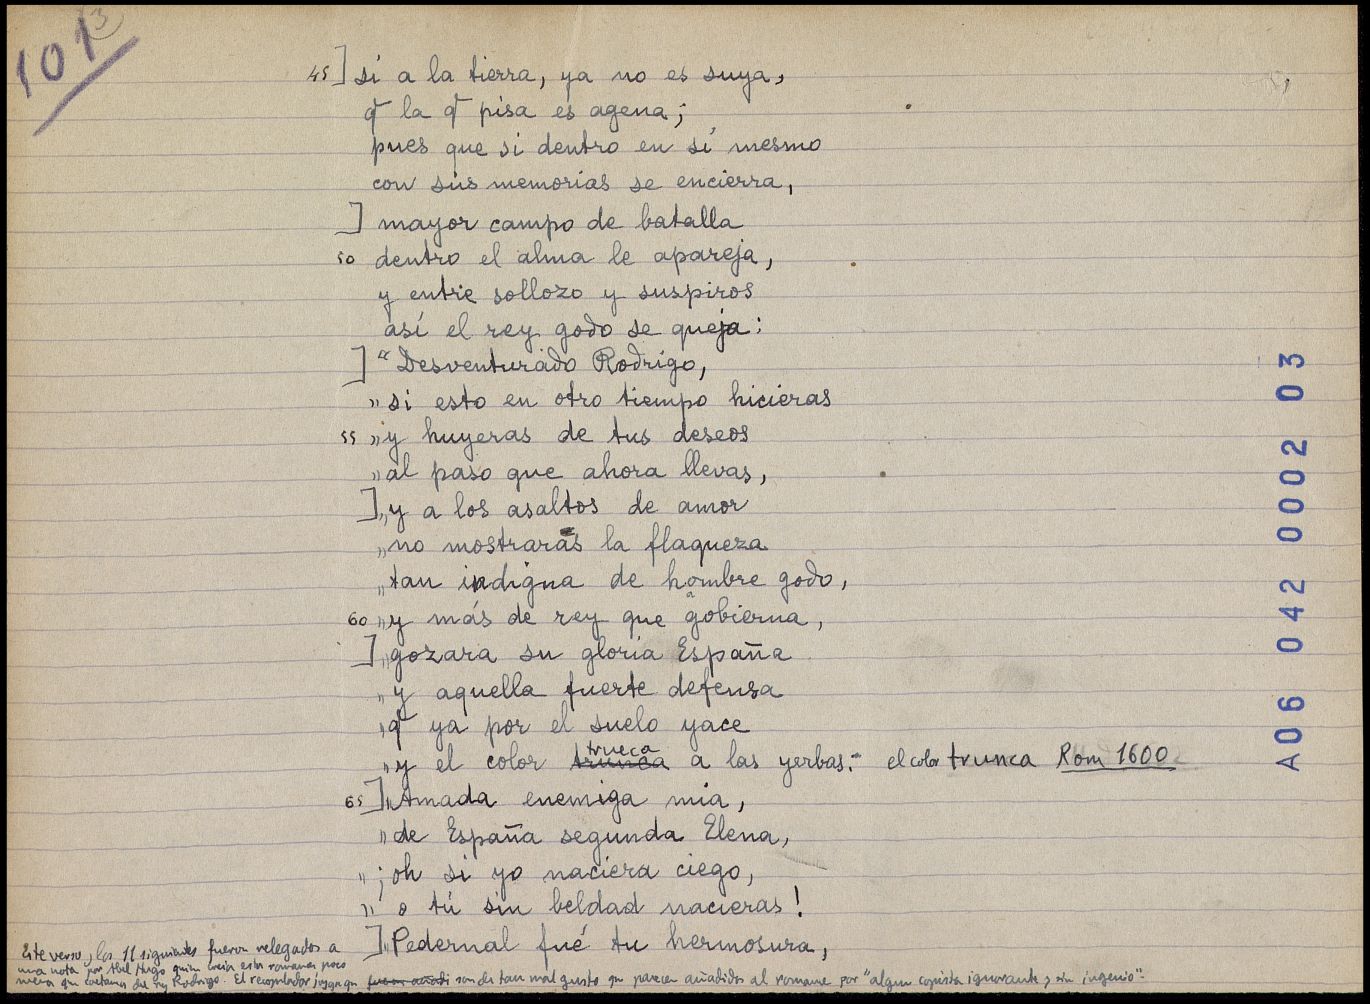 101
3
45 ] si a la tierra, ya no es suya,
q̄ la q̄ pisa es agena;
pues que si dentro en sí mesmo
con sus memorias se encierra,
] mayor campo de batalla
50 dentro el alma le apareja,
y entre sollozo y suspiros
así el rey godo se queja:
] “Desventurado Rodrigo,
„ si esto en otro tiempo hicieras
55 „ y huyeras de tus deseos
„ al paso que ahora llevas,
] „ y a los asaltos de amor
„ no mostraras la flaqueza
„ tan indigna de hombre godo,
60 „ y más de rey que gobierna,
] „ gozara su gloria España
„ y aquella fuerte defensa
„ q̄ ya por el suelo yace
„ y el color trunca trueca a las yerbas.- el color trunca Rom 1600
65 ] „ Amada enemiga mia,
„ de España segunda Elena,
„ ¡oh si yo naciera ciego,
„ o tú sin beldad nacieras!
] „ Pedernal fué tu hermosura,
Este verso y los 11 siguientes fueron relegados a
una nota por Abel Hugo quien creia este romance poco
del rey Rodrigo. El recopilador juzga que son de tan mal gusto que parecen añadidos al romance por "algun copista ignorante y sin ingenio".-
A06 042 0002 03